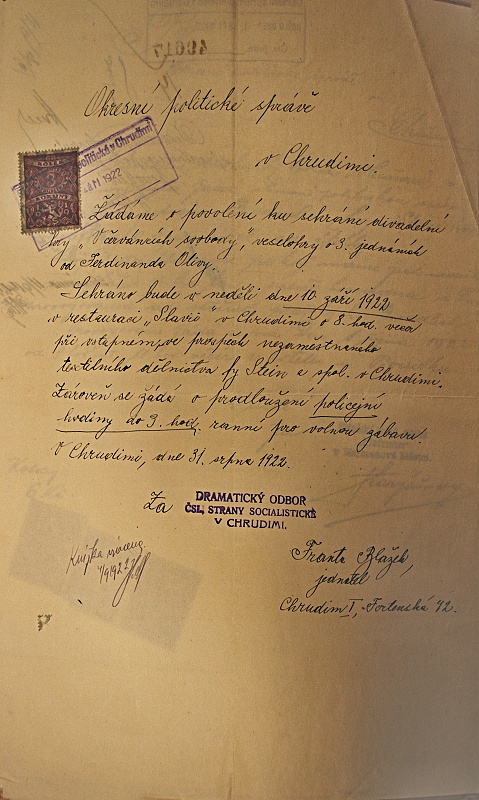 Okresní politické správě
v Chrudimi.
politická v Chrudimi
ZÁŘÍ 1922
Žádáme o povolení ku sehrání divadelní
hry „V červáncích svobody", veselohry o 3. jednáních
od Ferdinanda Olivy.
Sehráno bude v neděli dne 10. září 1922
v restauraci „Slavii" v Chrudimi o 8. hod. več.
při vstupném, ve prospěch nezaměstnaného
textilního dělnictva fy Stein a spol. v Chrudimi.
Zároveň se žádá o prodloužení policejní
hodiny do 3. hod. ranní pro volnou zábavu.
V Chrudimi, dne 31. srpna 1922.
Za
DRAMATICKÝ ODBOR
ČSL. STRANY SOCIALISTICKÉ
V CHRUDIMI.
Knížka vrácena
Franta Blažek,
jednatel
Chrudim I,